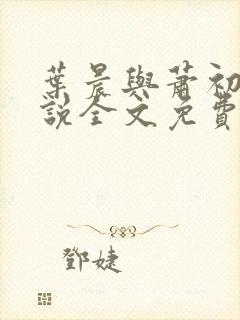 葉晨與蕭初
說全文免費
鄧婕